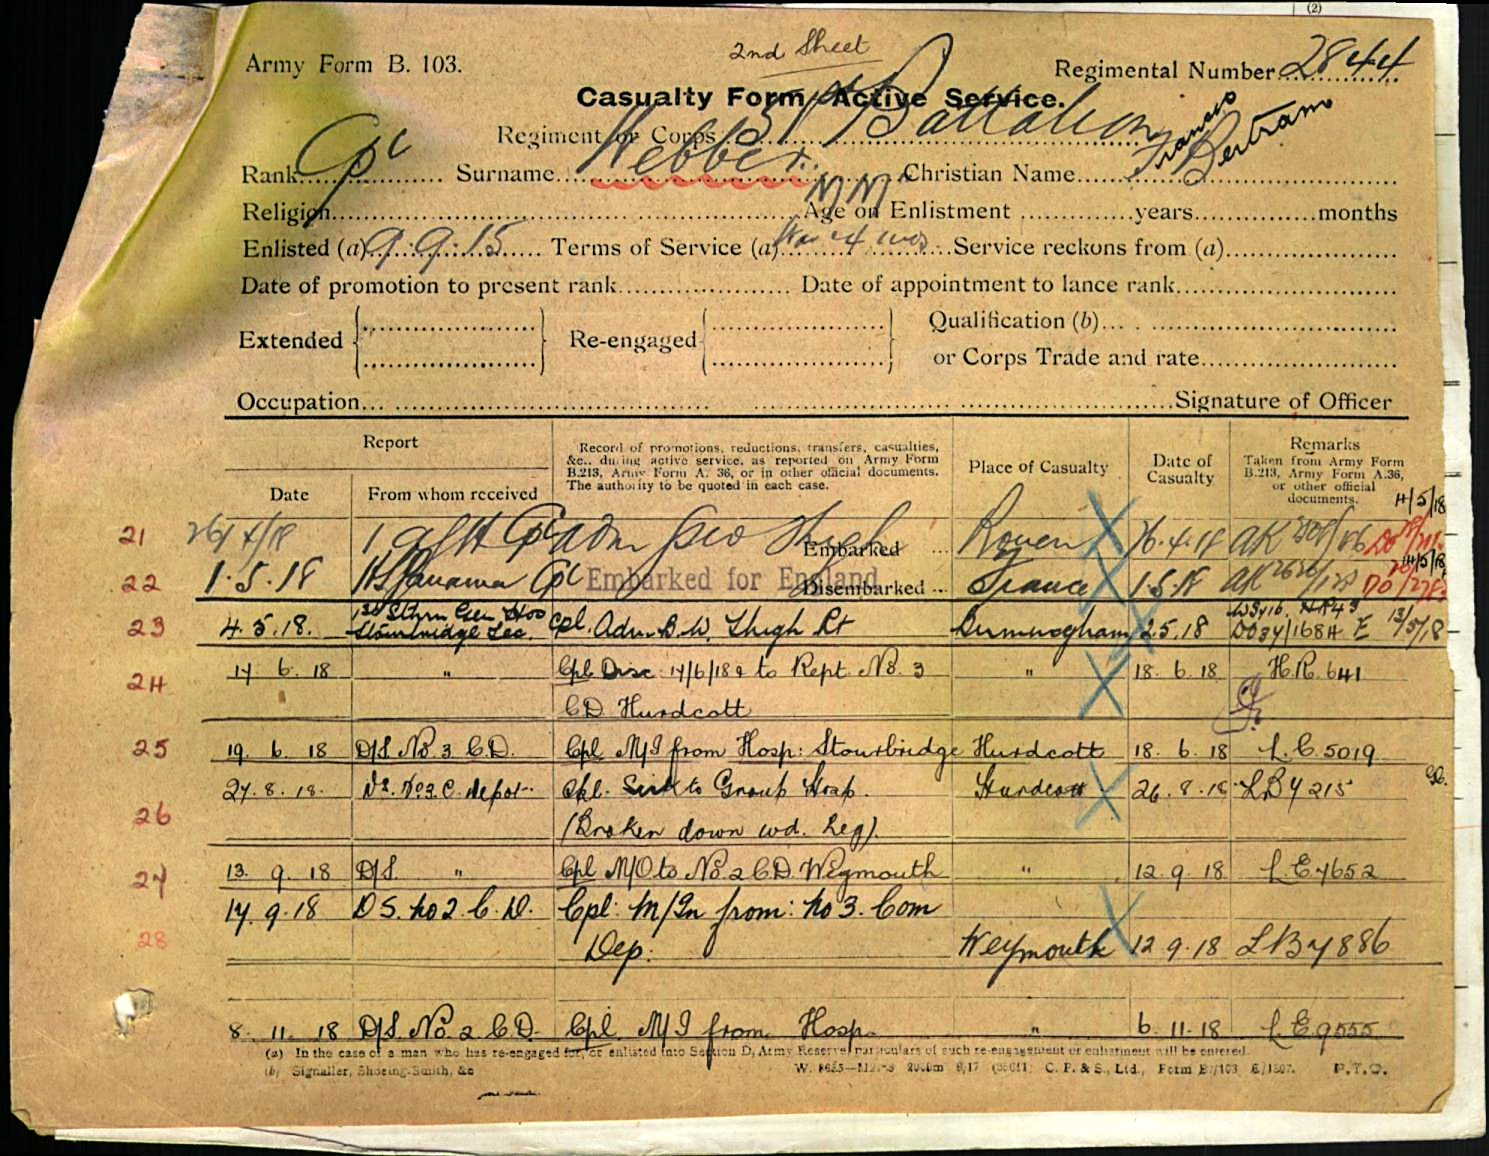 (2)
2nd Sheet
Army Form B. 103.
Regimental Number 2844
Casualty Form Active Service.
Regiment or Corps 51st Battalion
Rank Cpl Surname Webber. Christian Name Francis Bertram
MM
Religion Age on Enlistment years months
Enlisted (a) 9.9.15 Terms of Service (a) War 4 mos Service reckons from (a)
Date of promotion to present rank Date of appointment to lance rank
Extended Re-engaged Qualification (b)
or Corps Trade and rate
Occupation Signature of Officer
Report
Date From whom received
Record of promotions, reductions, transfers, casualties, &c., during active service, as reported on Army Form B.213, Army Form A. 36, or in other official documents. The authority to be quoted in each case.
Place of Casualty
Date of Casualty
Remarks
Taken from Army Form B.213, Army Form A.36, or other official documents.
14/5/18
21 26/4/18 1 Cpl Adm Thigh Embarked Rouen 26.4.18 AK
22 1.5.18 HS Panama Cpl Embarked for England Disembarked France 1.5.18 AK
14/5/18
23 4.5.18. 1st Sthrn Gen Hos Stourbridge Sec. Cpl. Adm. G.S.W. Thigh Rt Birmingham 2.5.18 DO34/1684 E 13/5/18
24 17 6 18 " Cpl Disc 17/6/18 & to Rept No. 3 " 18 6 18 H.R. 641
CD Hurdcott
25 19 6 18 D/S No. 3 C.D. Cpl M/I from Hosp: Stourbridge Hurdcott 18 6 18 L.C. 5019
27.8.18. No. 3 C. depot Cpl. Sick to Group Hosp. Hurdcott 26.8.18 LB4215
26 (Broken down wd. Leg)
27 13. 9. 18 D/S. " Cpl M/O to No. 2 C.D. Weymouth " 12.9.18 L.E.7652
17.9.18 D S. No 2. C. D. Cpl: M/In from: No 3. Com
28 Dep: Weymouth 12.9.18 LB7886
8. 11. 18 D/S. No. 2 C.D. Cpl. M/I from Hosp. " 6.11.18 L.E.9555
(a) In the case of a man who has re-engaged for, or enlisted into Section D, Army Reserve, particulars of such re-engagement or enlistment will be entered.
(b) Signaller, Shoeing-Smith, &c
C. P. & S., Ltd., P.T.O.